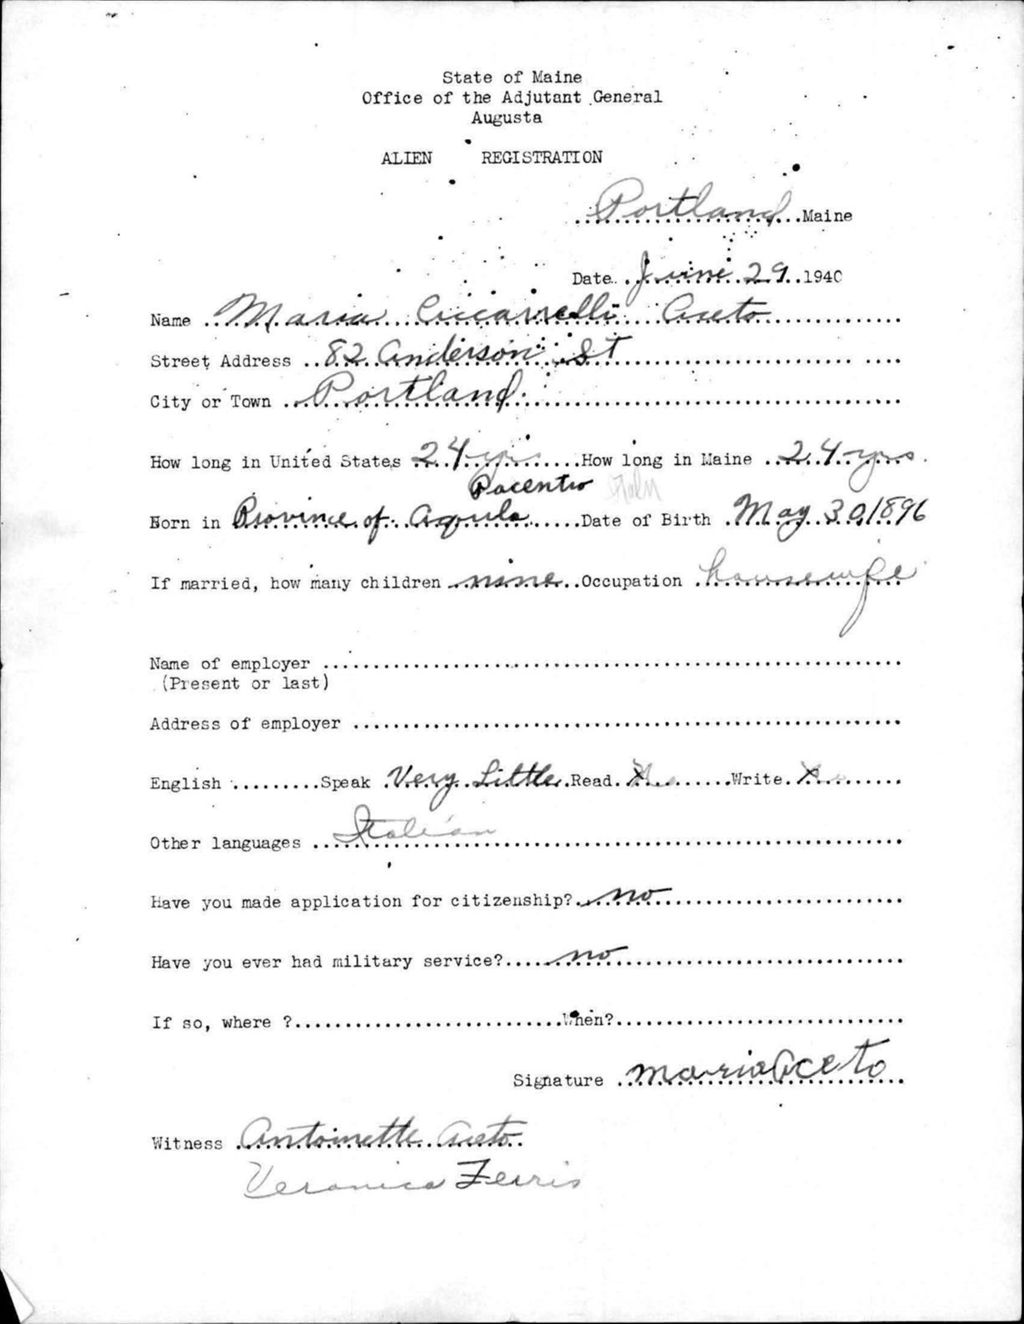 State of Maine
Office of the Adjutant General
Augusta
ALIEN REGISTRATION
Portland Maine
Date June 29 1940
Name Maria Ciccarelli Aceto
Street Address 82 Anderson St
City or Town Portland
How long in United States 24 yrs How long in Maine 24 yrs
Pacentro Italy
Born in Province of Aquila Date of Birth May 30, 1896
If married, how many children nine Occupation housewife
Name of employer
(Present or last)
Address of employer
English Speak Very Little Read X Write X
Other languages Italian
Have you made application for citizenship? no
Have you ever had military service? no
If so, where ? When?
Signature Maria Aceto
Witness Antoinette Aceto
Veronica Ferris